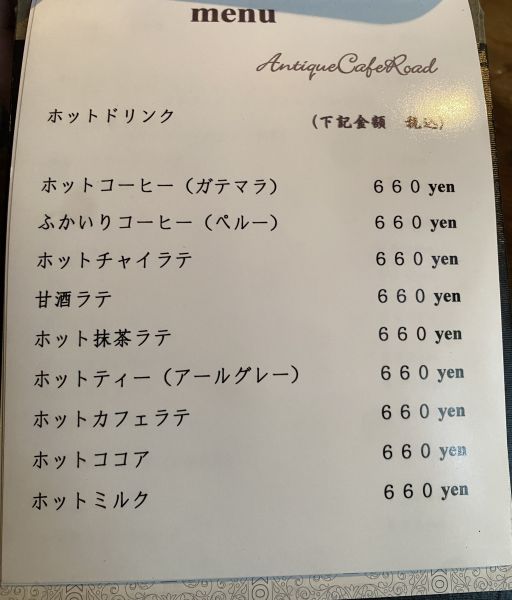 menu
AntiqueCafeRoad
ホットドリンク (下記金額 税込)
ホットコーヒー（ガテマラ） ６６０yen
ふかいりコーヒー（ペルー） ６６０yen
ホットチャイラテ ６６０yen
甘酒ラテ ６６０yen
ホット抹茶ラテ ６６０yen
ホットティー（アールグレー） ６６０yen
ホットカフェラテ ６６０yen
ホットココア ６６０yen
ホットミルク ６６０yen